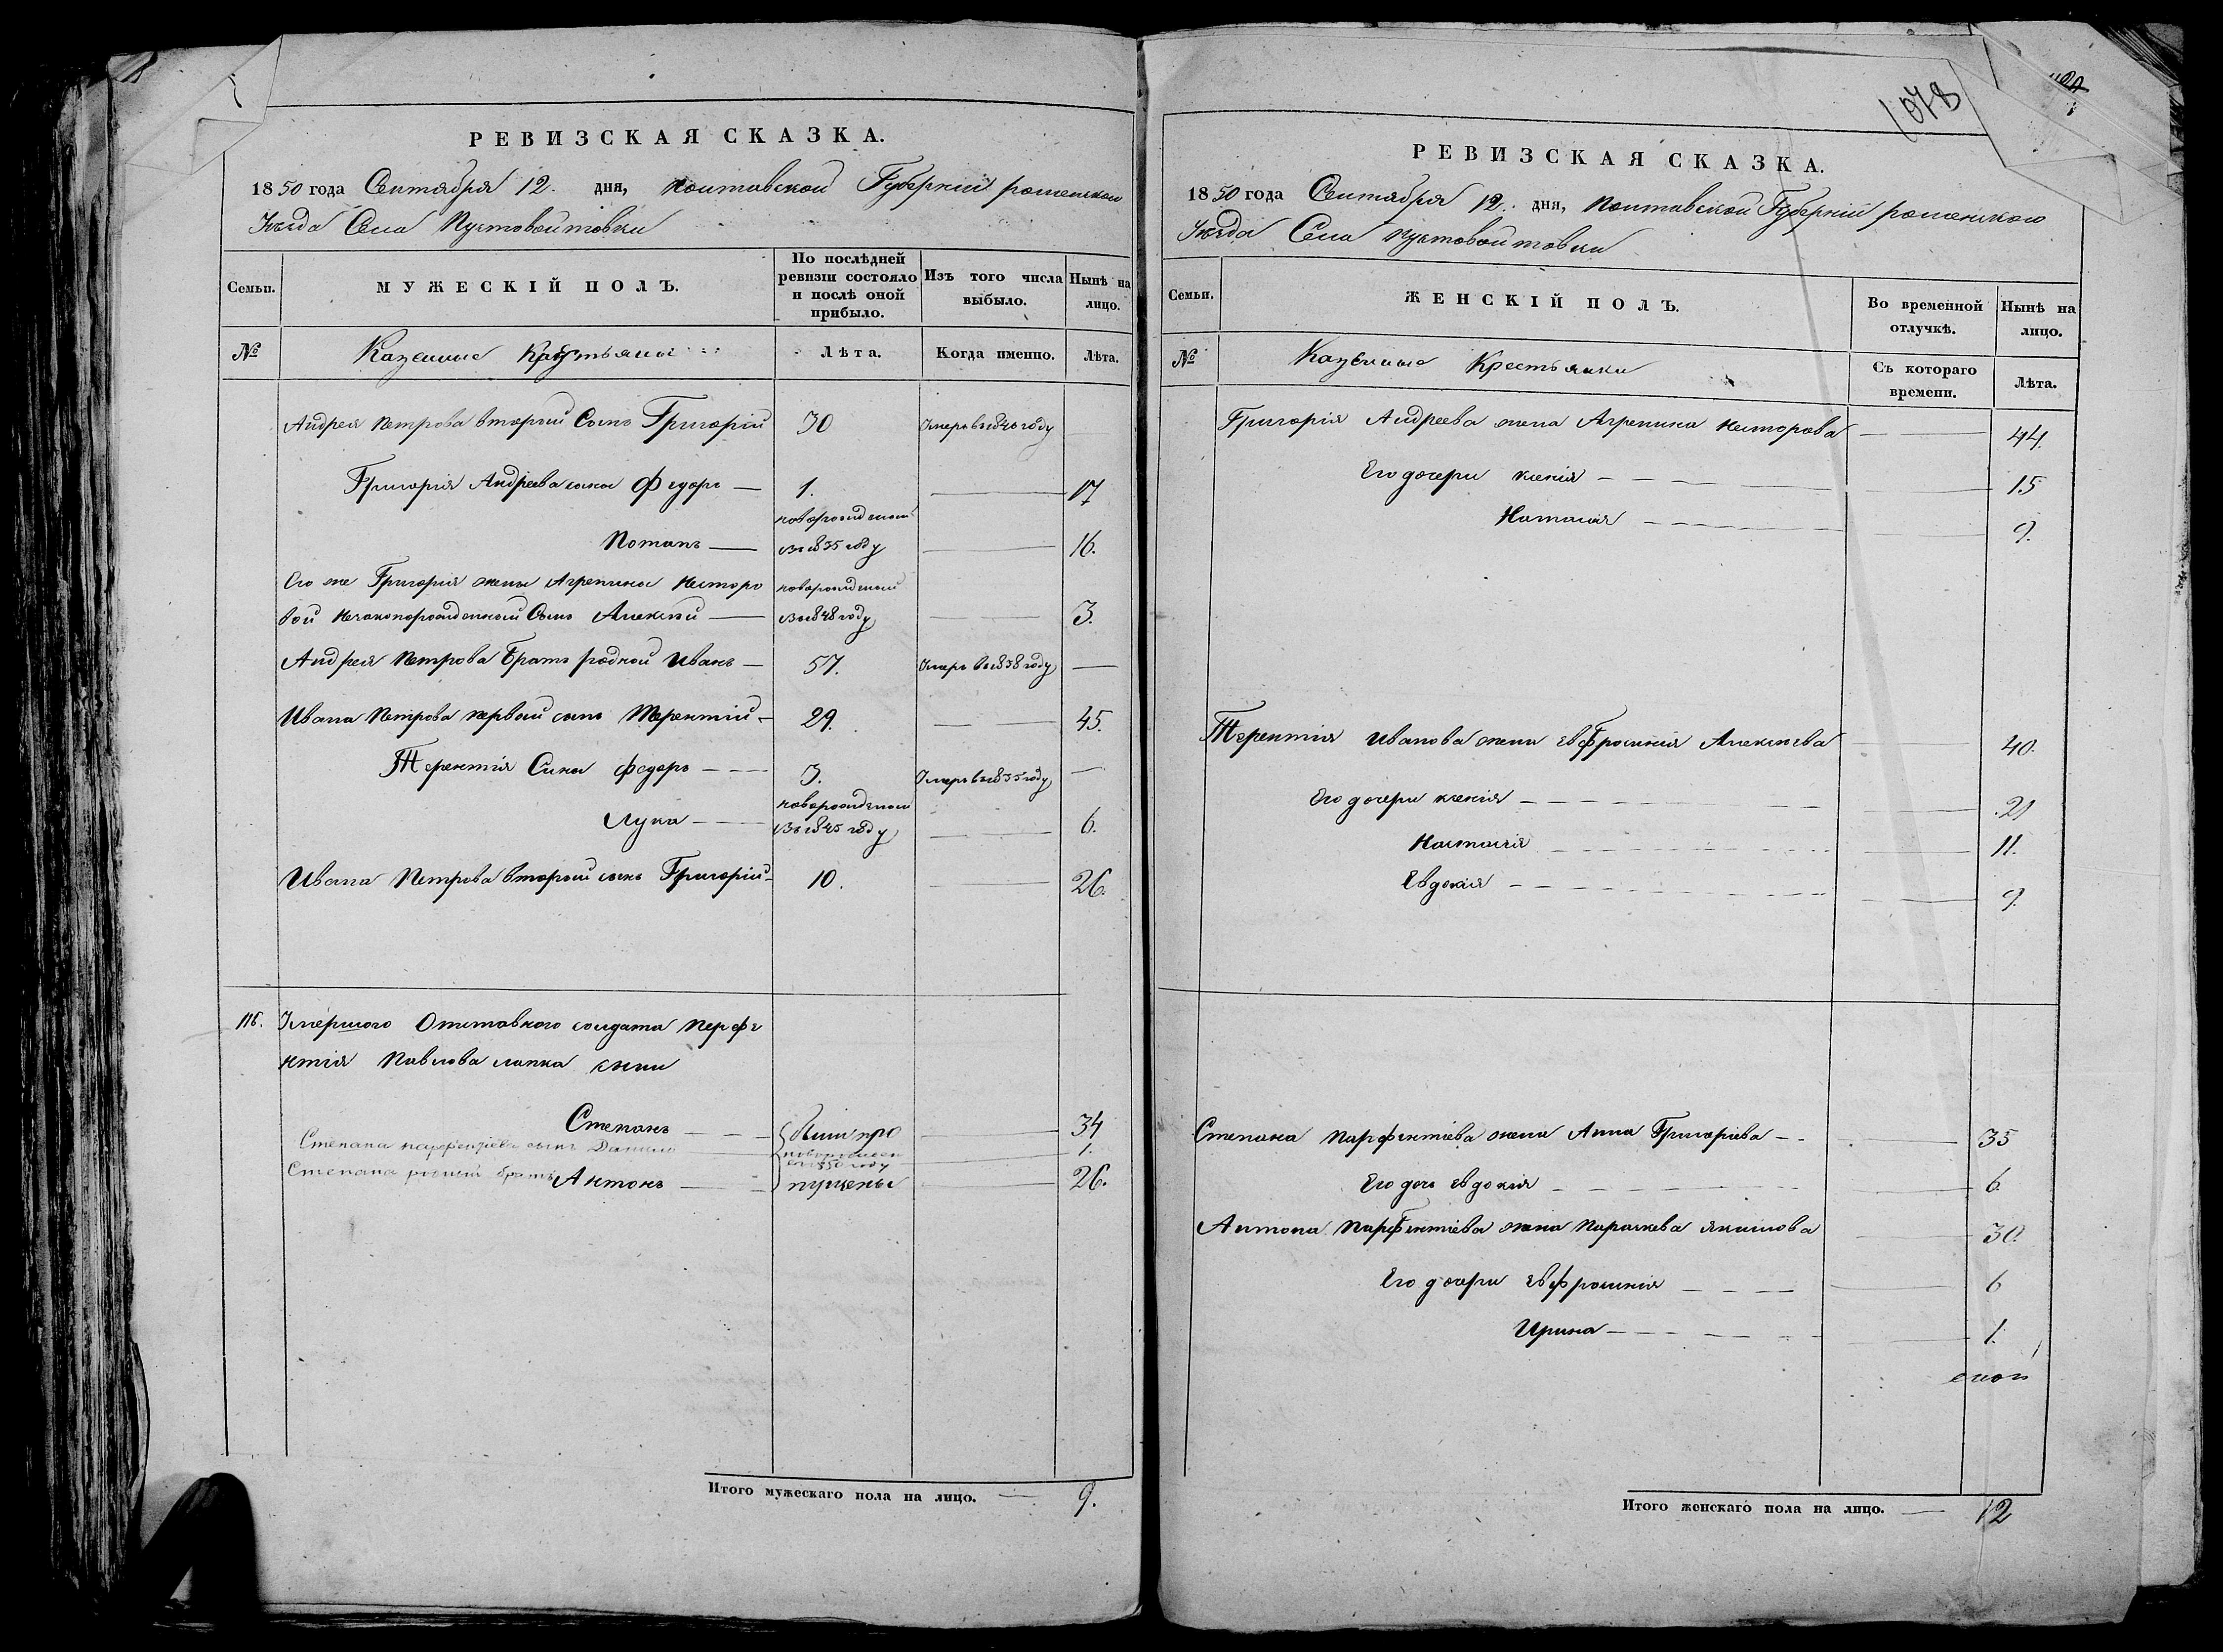 РЕВИЗСКАЯ СКАЗКА.
1850 года Сентября 12. дня, Полтавской Губерніи роменскаго
Уѣзда Села Пустовойтовки
Семьи.
МУЖЕСКІЙ ПОЛЪ.
По послѣдней ревизіи состояло и послѣ оной прибыло.
Изъ того числа выбыло.
Нынѣ на лицо.
№
Казенные Крестьяны
Лѣта.
Когда именно.
Лѣта.
Андрея Петрова вторый Сынъ Григорій 30 Умеръ въ 1840 году
Григорія Андреева сыны Федоръ — 1. — 17
новорожденый
Потапъ — въ 1835 году — 16.
Его же Григорія жены Агрепины Несторо новорожденый
вой Незаконорожденный Сынъ Алексѣй — въ 1848 году — 3.
Андрея Петрова Братъ родной Иванъ — 57. Умеръ въ 1838 году —
Ивана Петрова первый сынъ Терентій - 29. — 45.
Терентія Сыны Федоръ — 3. Умеръ въ 1835 году —
новорожденый
Лука — въ 1845 году — 6.
Ивана Петрова вторый сынъ Григорій - 10. — 26.
116. Умершого Отставного солдата Перфе
нтія Павлова лапка сыны
Степанъ — были про — 34
Степана парфентіева сынъ Данило — новорожден — 1.
въ 1850 году
Степана родный братъ Антонъ — пущены — 26.
Итого мужескаго пола на лицо. — 9.
1078
РЕВИЗСКАЯ СКАЗКА.
1850 года Сентября 12. дня, Полтавской Губерніи роменского
Уѣзда Села Пустовойтовки
Семьи.
ЖЕНСКІЙ ПОЛЪ.
Во временной отлучкѣ.
Нынѣ на лицо.
№
Казенные Крестьянки
Съ котораго времени.
Лѣта.
Григорія Андреева жена Агрепина Несторова — 44.
Его дочери ксенія — 15
Наталія — 9.
Терентія Иванова жена Евфросинія Алексѣева — 40.
Его дочери ксенія — 21
Настасія — 11.
Евдокія — 9.
Степана Парфентіева жена Анна Григоріева — 35
Его дочь Евдокія — 6
Антона Парфентіева жена Параскева Якимова — 30.
Его дочери Евфросинія — 6
Ирина — 1.
Итого женскаго пола на лицо. — 12